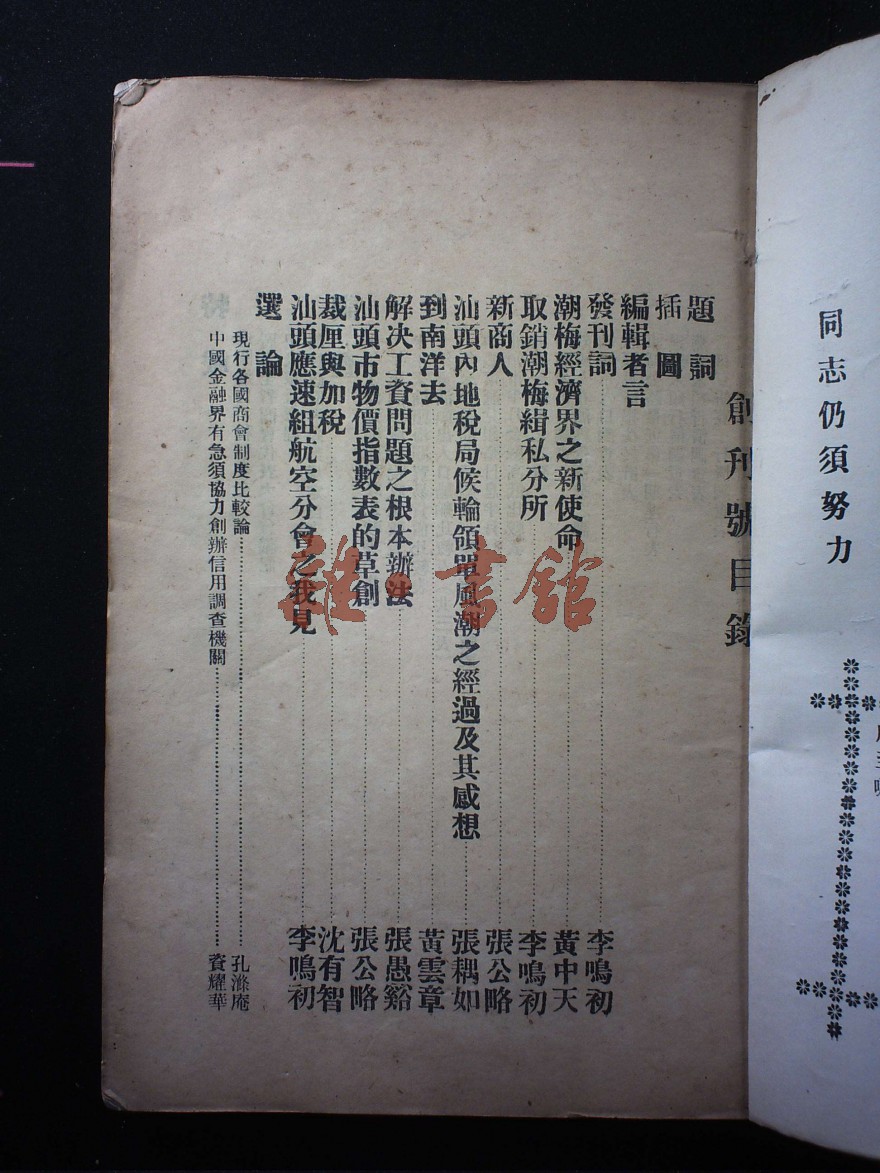 同志仍須努力
創刊號目錄
題詞
插圖
編輯者言
發刊詞……李鳴初
潮梅經濟界之新使命……黃中天
取銷潮梅緝私分所……李鳴初
新商人……張公略
汕頭內地稅局候輪領單風潮之經過及其感想……張耦如
到南洋去……黃雲章
解決工資問題之根本辦法……張愚谿
汕頭市物價指數表的草創……張公略
裁厘與加稅……沈有智
汕頭應速組航空分會之我見……李鳴初
選論
現行各國商會制度比較論……孔滌庵
中國金融界有急須協力創辦信用調查機關……資耀華
雜·書館